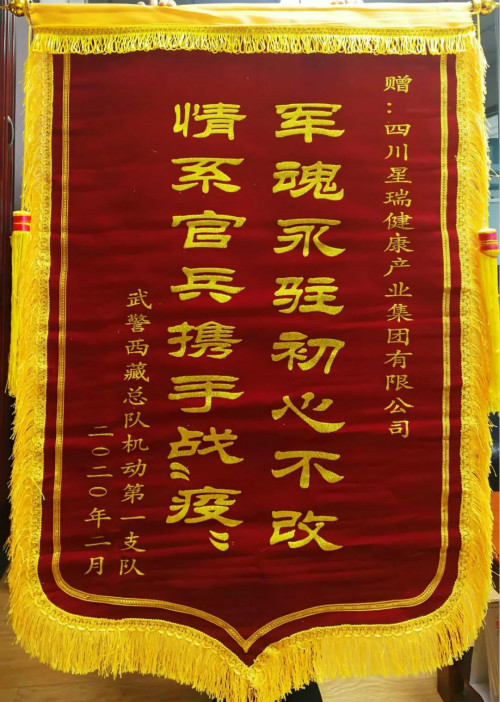 赠:四川星瑞健康产业集团有限公司
军魂永驻初心不改
情系官兵携手战“疫”
武警西藏总队机动第一支队
二〇二〇年二月